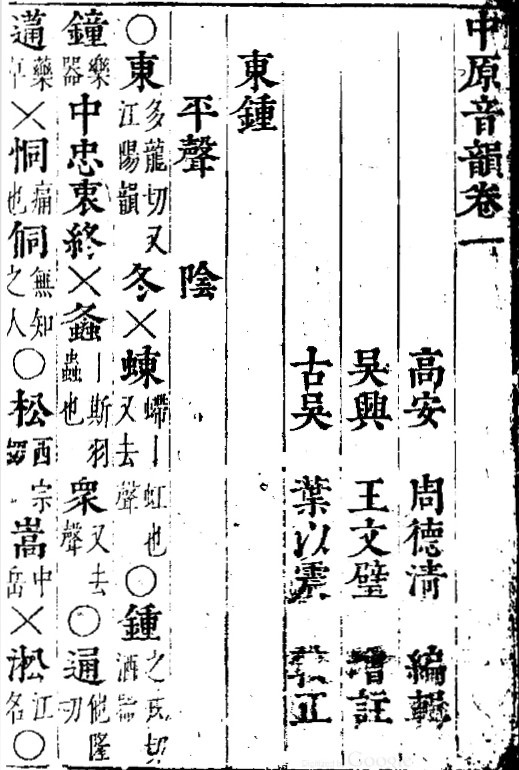 中原音韻卷一
高安 周德清 編輯
吳興 王文璧 增註
古吳 葉以震 校正
東鍾
平聲 陰
○東多龍切又江陽韻冬×蝀螮丨虹也又去聲○鍾酒器
鐘樂器中忠衷終×螽丨斯羽蟲也衆又去聲○通他隆切
蓪藥草×恫痛也侗無知之人○松西宗切嵩中岳×淞江名○